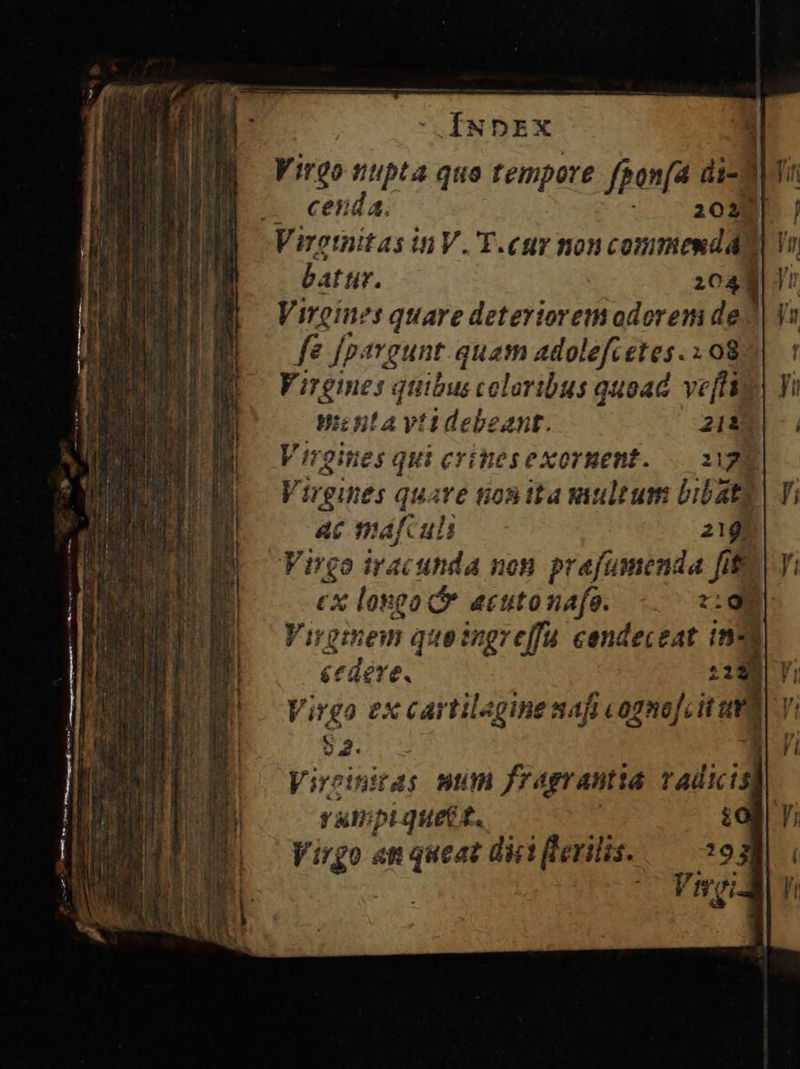 INDEX
Virgo nupta quo tempore ſponſa di-
cenda. 202
Virginitas in V. T. cur non commenda
batur. 204
Virgines quare deteriorem odorem de
ſe ſpargunt quam adoleſcẽtes. 208
Virgines quibus coloribus quoad veſti
menta vti debeant. 212
Virgines qui crines exornent. 217
Virgines quare non ita multum bibãt,
ac maſculi 219
Virgo iracunda non præſumenda ſit
ex longo & acuto naſo.
Virginem quo ingreſſu condeceat in-
cedere.
Virgo ex cartilagine naſi cognoſcitur
52.
Virginitas num fragrantia radicis
rumpi queat.
Virgo an queat dici ſterilis. 293
Virgi-